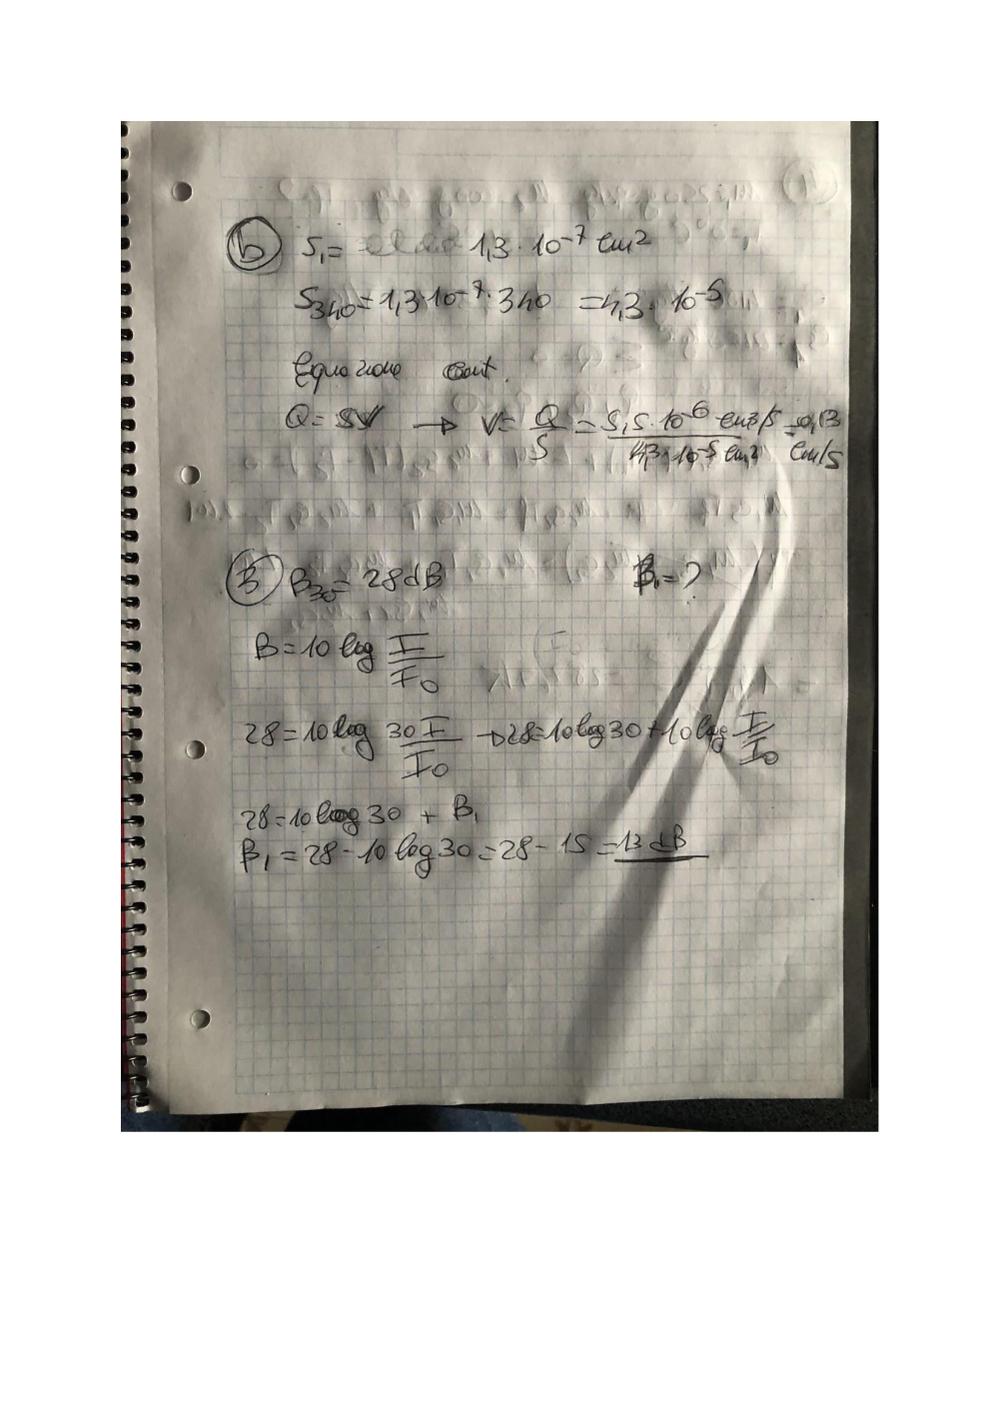 b S₁= 1,3 · 10⁻⁷ cm²
S₃₄₀=1,3·10⁻⁷·340 =4,3· 10⁻⁵
Equazione cont.
Q= SV → V= Q/S = 5,5·10⁻⁶ cm3/s / 4,3·10⁻⁵ cm² = 0,13 cm/s
3 B₃₀= 28dB B₁=?
B=10 log I/I₀
28=10log 30I/I₀ → 28=10log30+10log I/I₀
28=10log30 + B₁
B₁=28-10log30=28-15=13dB